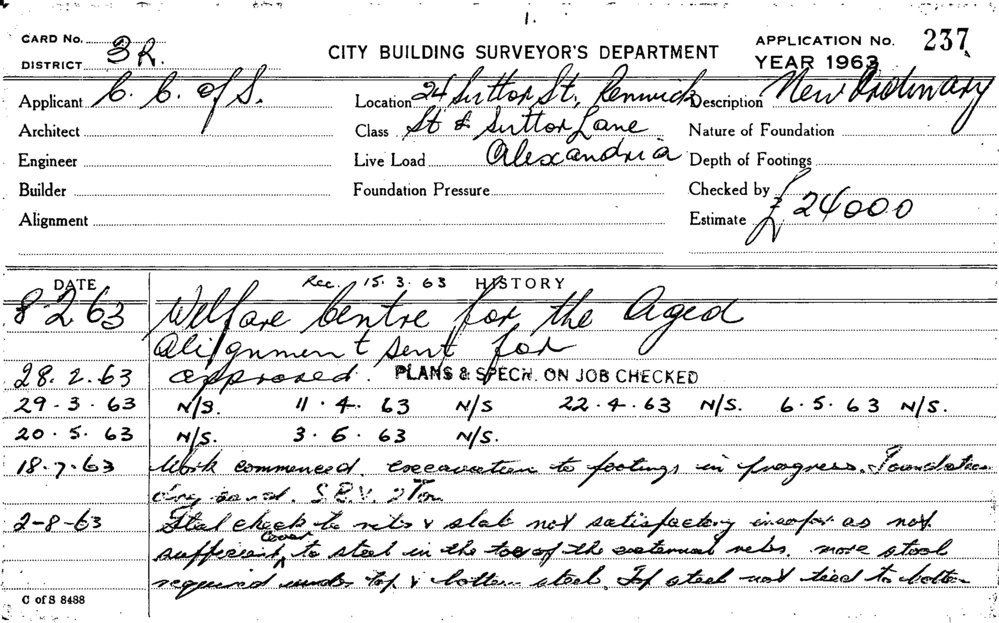 1.
CARD No.
DISTRICT 3R.
CITY BUILDING SURVEYOR'S DEPARTMENT
APPLICATION No. 237
YEAR 1963
Applicant C. C. of S. Location 24 Suttor St, Renwick Description New Ordinary
Architect Class St & Suttor Lane Nature of Foundation
Engineer Live Load Alexandria Depth of Footings
Builder Foundation Pressure Checked by
Alignment Estimate £24000
DATE Rec. 15.3.63 HISTORY
8 2 63 Welfare Centre for the Aged
Alignment sent for
28.2.63 approved. PLANS & SPECN. ON JOB CHECKED
29.3.63 N/S. 11.4.63 N/S 22.4.63 N/S. 6.5.63 N/S.
20.5.63 N/S. 3.6.63 N/S.
18.7.63 Work commenced. excavation to footings in progress. Foundation
dry sand. S.B.V. 2 Ton
2-8-63 Steel check to ribs & slab not satisfactory insofar as not
sufficient cover to steel in the toe of the external ribs. more stools
required under top & bottom steel. Top steel not tied to bottom
C of S 8488